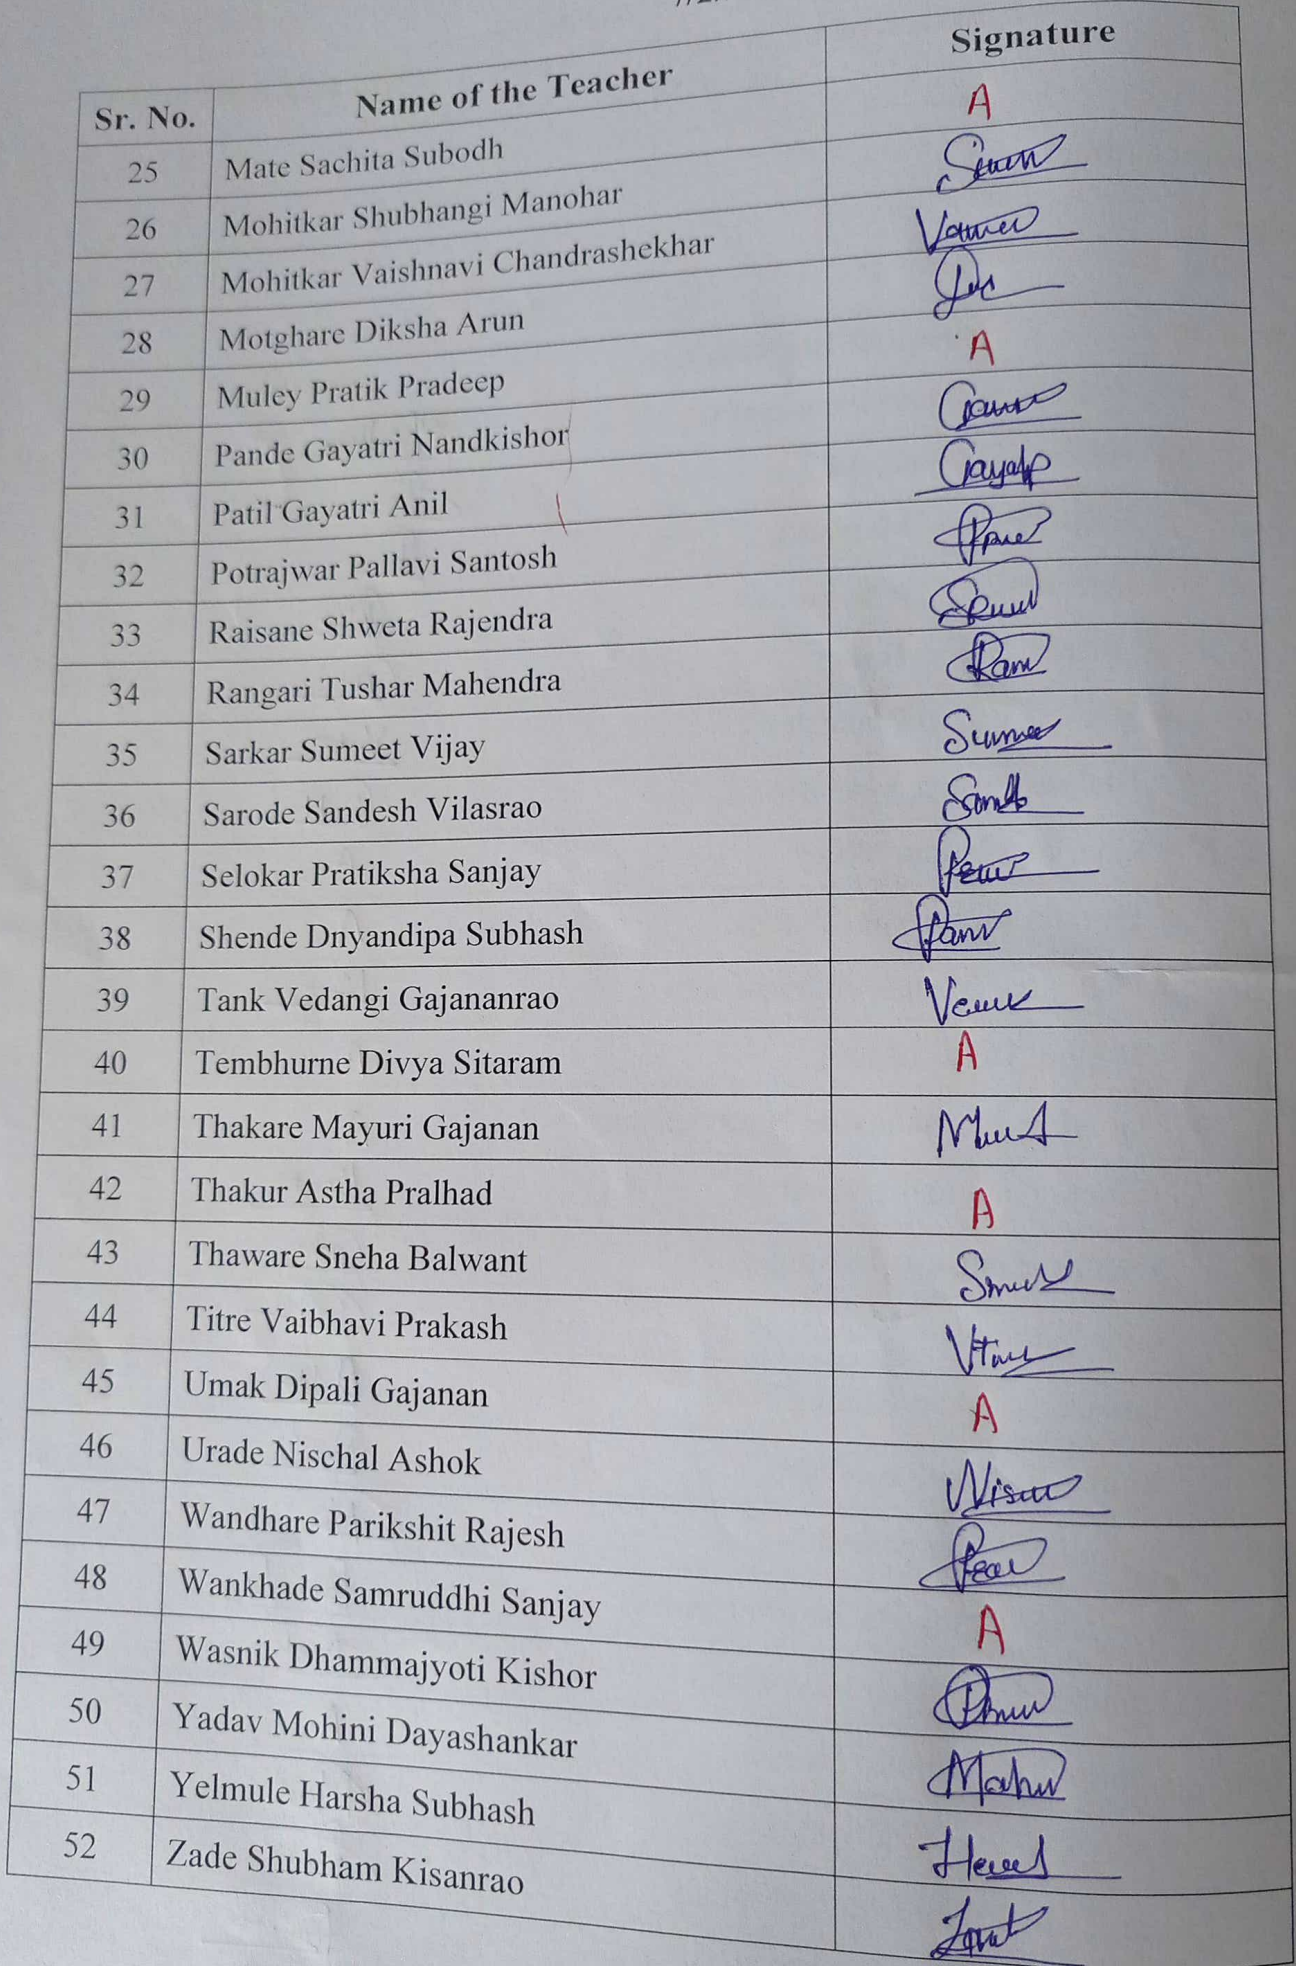 Sr. No. Name of the Teacher Signature
25 Mate Sachita Subodh A
26 Mohitkar Shubhangi Manohar
27 Mohitkar Vaishnavi Chandrashekhar
28 Motghare Diksha Arun
29 Muley Pratik Pradeep A
30 Pande Gayatri Nandkishor
31 Patil Gayatri Anil
32 Potrajwar Pallavi Santosh
33 Raisane Shweta Rajendra
34 Rangari Tushar Mahendra
35 Sarkar Sumeet Vijay
36 Sarode Sandesh Vilasrao
37 Selokar Pratiksha Sanjay
38 Shende Dnyandipa Subhash
39 Tank Vedangi Gajananrao
40 Tembhurne Divya Sitaram A
41 Thakare Mayuri Gajanan
42 Thakur Astha Pralhad A
43 Thaware Sneha Balwant
44 Titre Vaibhavi Prakash
45 Umak Dipali Gajanan A
46 Urade Nischal Ashok
47 Wandhare Parikshit Rajesh
48 Wankhade Samruddhi Sanjay A
49 Wasnik Dhammajyoti Kishor
50 Yadav Mohini Dayashankar
51 Yelmule Harsha Subhash
52 Zade Shubham Kisanrao